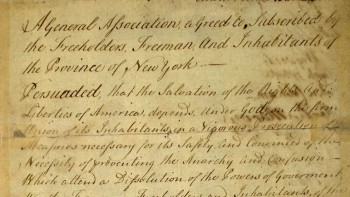 A General Association, agreed to Subscribed by
the Freeholders, Freeman, And Inhabitants of
the Province of New York —
Persuaded, that the Salvation of the Rights And
Liberties of America, depends, Under God, on the firm
Union of its Inhabitants, in a Vigorous Prosecution of
Measures necessary for its Safety, and Convinced of the
Necessity of preventing the Anarchy and Confusion —
Which attend a Dissolution of the Powers of Government,
Inhabitants, of the